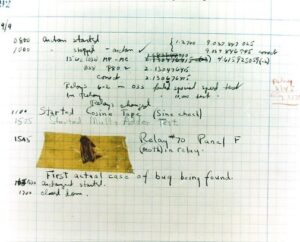 9/9
0800 antan started
1000 " stopped - antan ✓
13"uc (032) MP-MC
(033) PRO 2 2.130476415
conect 2.130676415
Relays 6-2 in 033 failed special speed test
in relay
Relays changed
1100 Started Cosine Tape (Sine check)
1525 Started Mult+Adder Test.
1545 Relay #70 Panel F
(moth) in relay.
First actual case of bug being found.
antangent started.
1700 closed down.